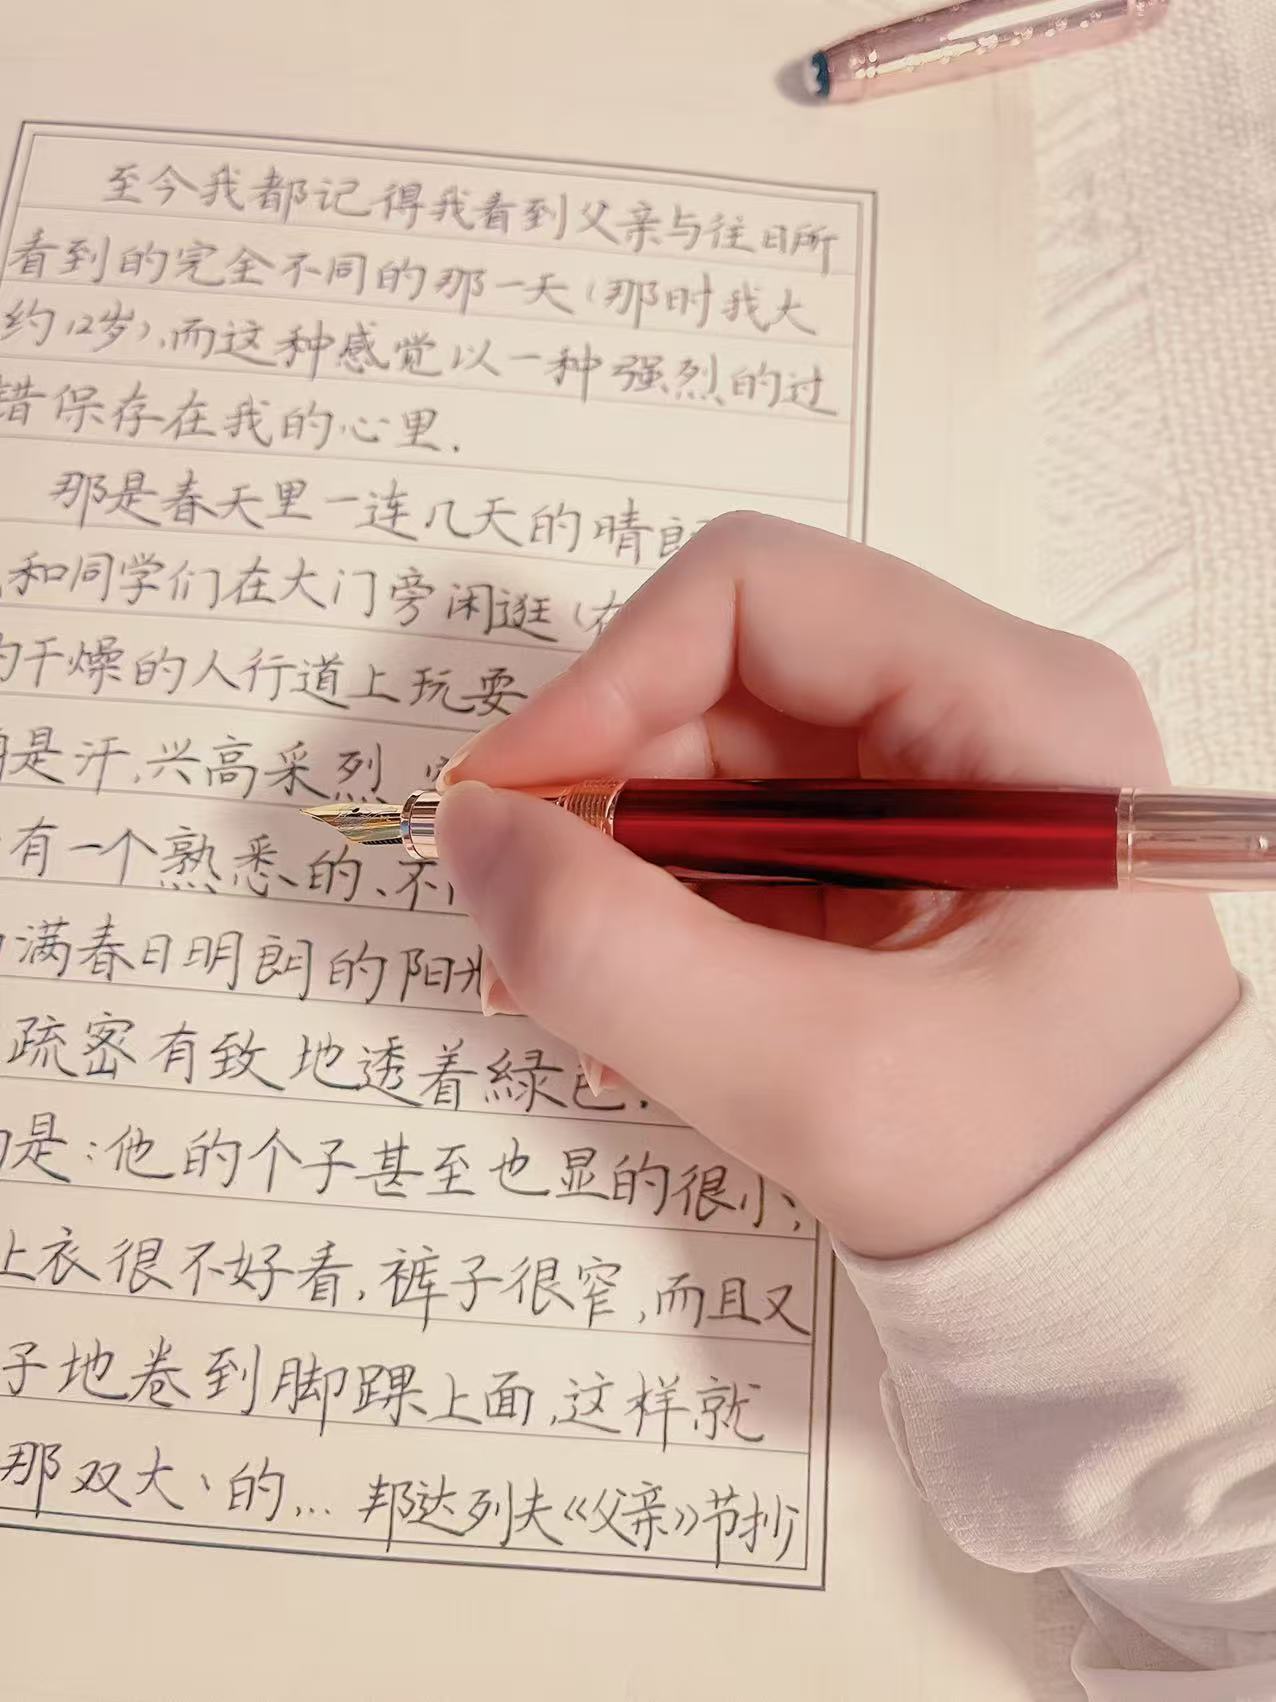 至今我都记得我看到父亲与往日所
看到的完全不同的那一天(那时我大
约12岁),而这种感觉以一种强烈的过
错保存在我的心里.
那是春天里一连几天的晴朗
和同学们在大门旁闲逛(在
的干燥的人行道上玩耍
是汗,兴高采烈
有一个熟悉的、不
满春日明朗的阳光
疏密有致地透着緑色.
的是:他的个子甚至也显的很小;
上衣很不好看,裤子很窄,而且又
子地卷到脚踝上面,这样就
那双大、的... 邦达列夫《父亲》节抄